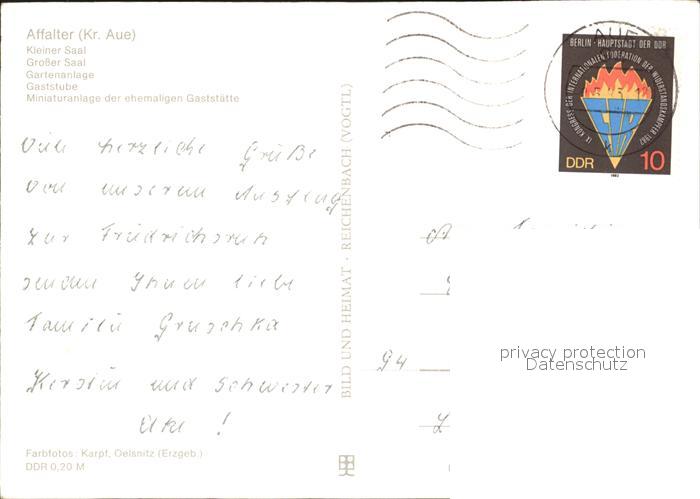 Affalter (Kr. Aue)
Kleiner Saal
Großer Saal
Gartenanlage
Gaststube
Miniaturanlage der ehemaligen Gaststätte
Viele herzliche Grüße
von unserem Ausflug
zur Friedrichsruh
senden Ihnen liebe
Familie Gruschka
Kerstin und Schwester
Ute !
Farbfotos: Karpf, Oelsnitz (Erzgeb.)
DDR 0,20 M
BILD UND HEIMAT · REICHENBACH (VOGTL)
AUE
BERLIN · HAUPTSTADT DER DDR
IX. KONGRESS DER INTERNATIONALEN FÖDERATION DER WIDERSTANDSKÄMPFER 1982
FIR
DDR 10
1982
94
privacy protection
Datenschutz